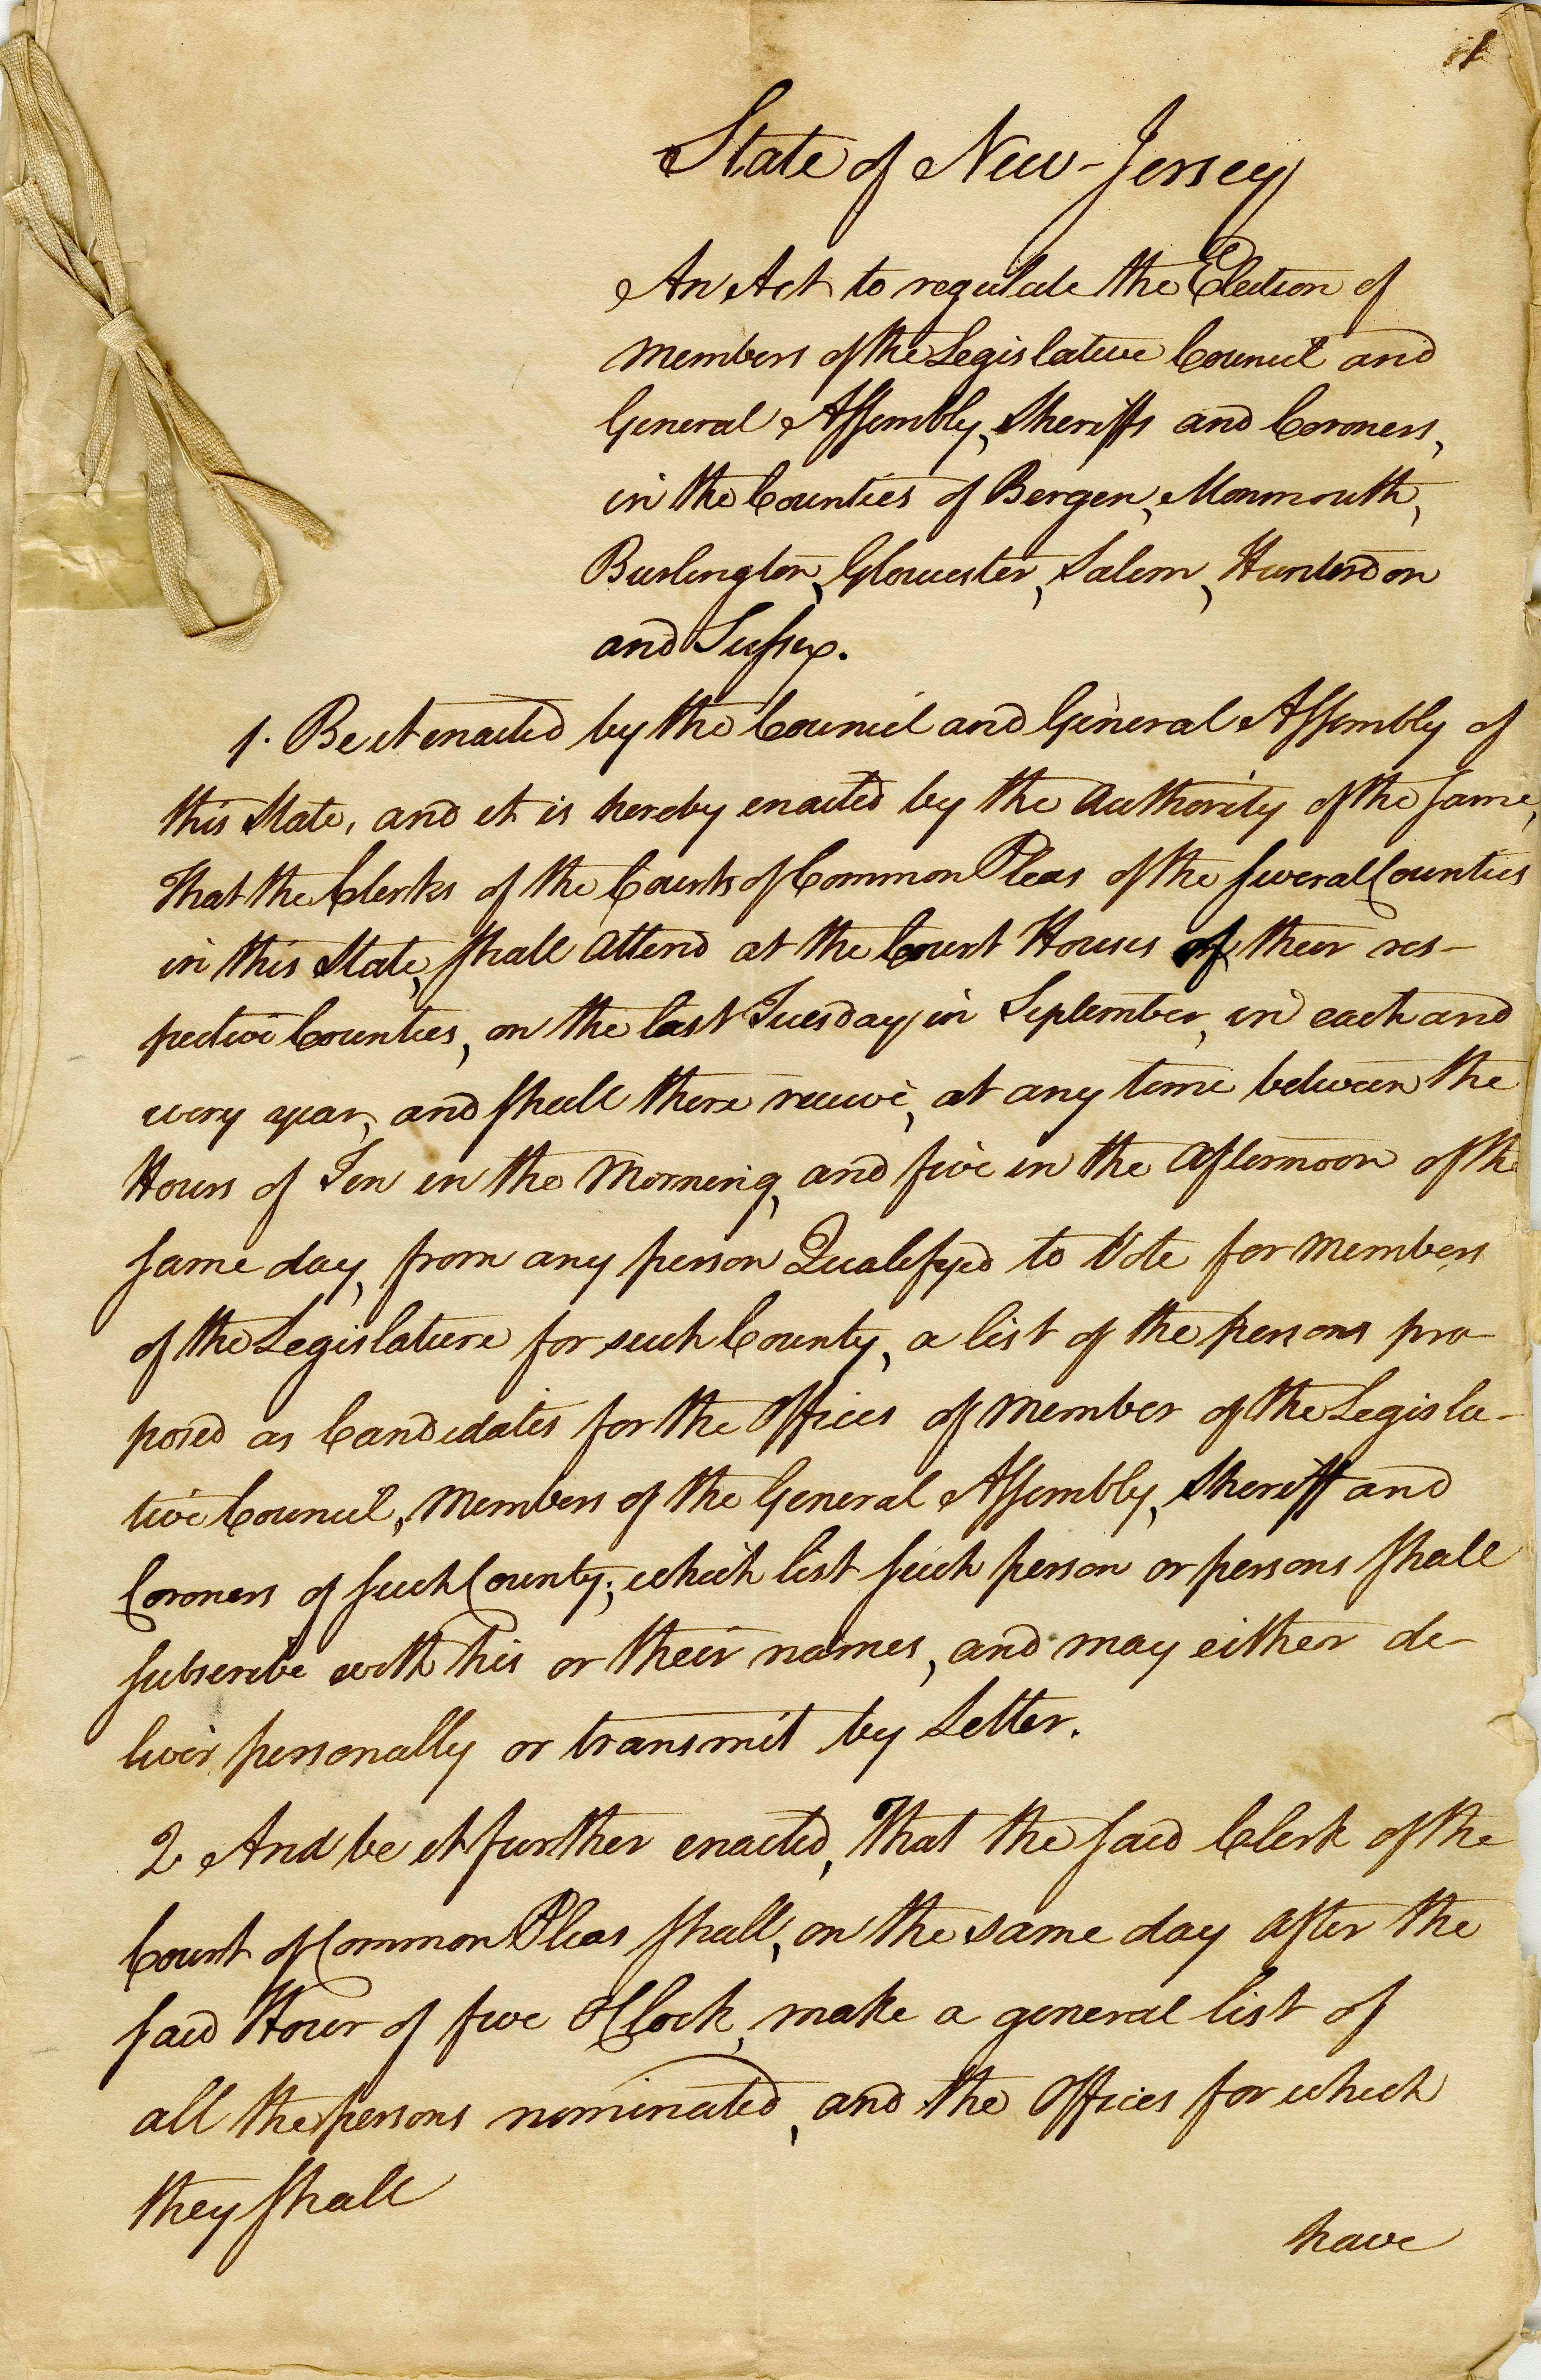 1
State of New-Jersey
An Act to regulate the Election of
Members of the Legislative Council and
General Assembly, Sheriffs and Coroners,
in the Counties of Bergen, Monmouth,
Burlington, Gloucester, Salem, Hunterdon
and Sussex.
1. Be it enacted by the Council and General Assembly of
this State, and it is hereby enacted by the Authority of the same,
That the Clerks of the Courts of Common Pleas of the several Counties
in this State, shall attend at the Court Houses of their res-
pective Counties, on the last Tuesday in September, in each and
every year, and shall there receive, at any time between the
Hours of Ten in the Morning, and five in the Afternoon of the
same day, from any person Qualifyed to Vote for Members
of the Legislature for such County, a list of the persons pro-
posed as Candidates for the Offices of Member of the Legisla-
tive Council, Members of the General Assembly, Sheriff and
Coroners of such County; which list such person or persons shall
subscribe with his or their names, and may either de-
liver personally or transmit by Letter.
2 And be it further enacted, That the said Clerk of the
Court of Common Pleas shall, on the same day after the
said Hour of five O'Clock, make a general list of
all the persons nominated, and the Offices for which
they shall
have